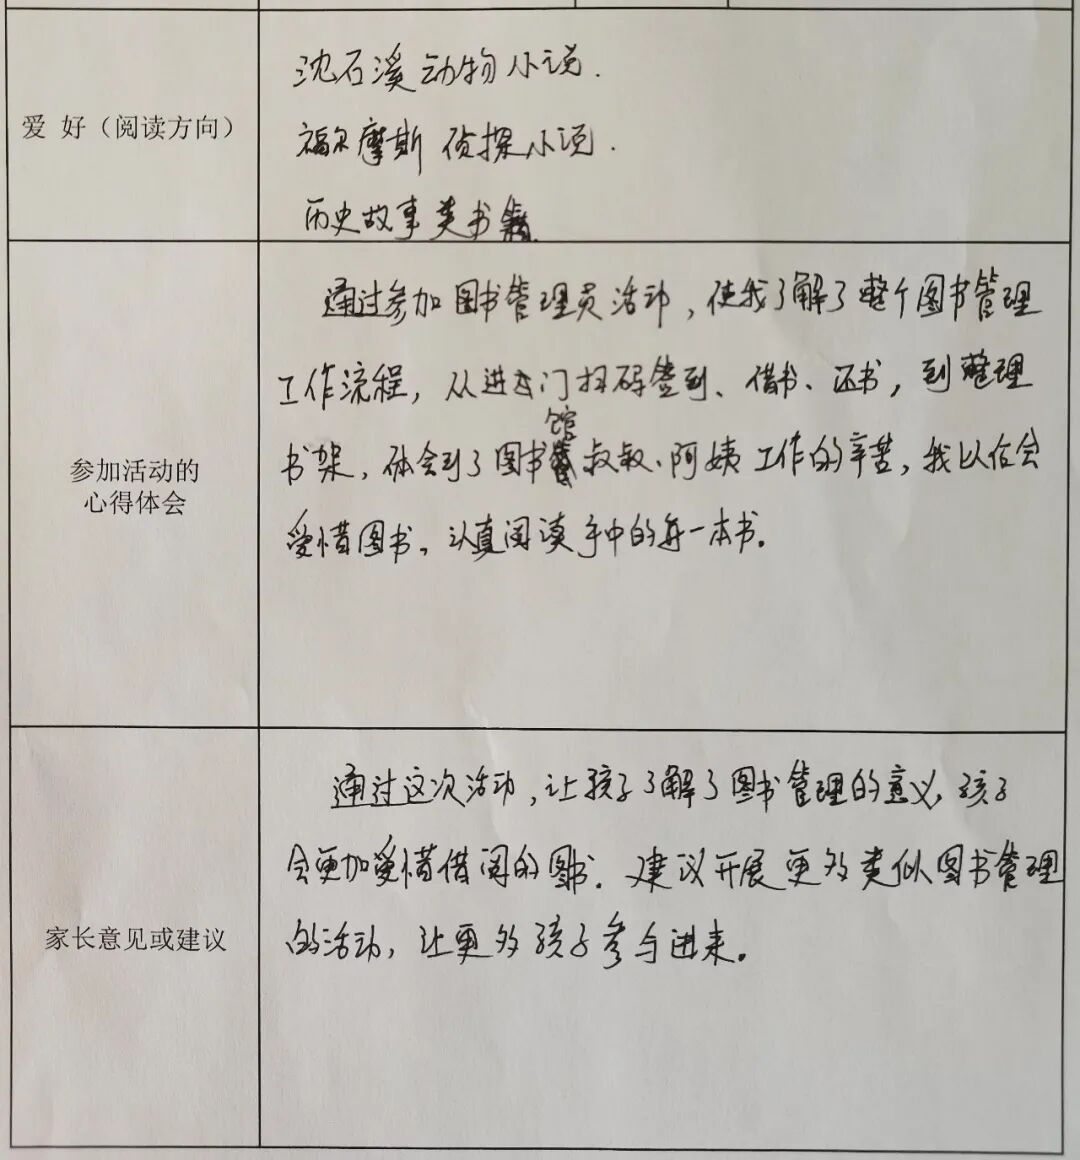 爱 好（阅读方向）
沈石溪动物小说.
福尔摩斯 侦探小说.
历史故事类书籍.
参加活动的
心得体会
通过参加图书管理员活动，使我了解了整个图书管理
工作流程，从进去门扫码签到、借书、还书，到整理
书架，体会到了图书馆叔叔、阿姨工作的辛苦，我以后会
爱惜图书，认真阅读手中的每一本书。
家长意见或建议
通过这次活动，让孩子了解了图书管理的意义，孩子
会更加爱惜借阅的图书. 建议开展更多类似图书管理
的活动，让更多孩子参与进来。